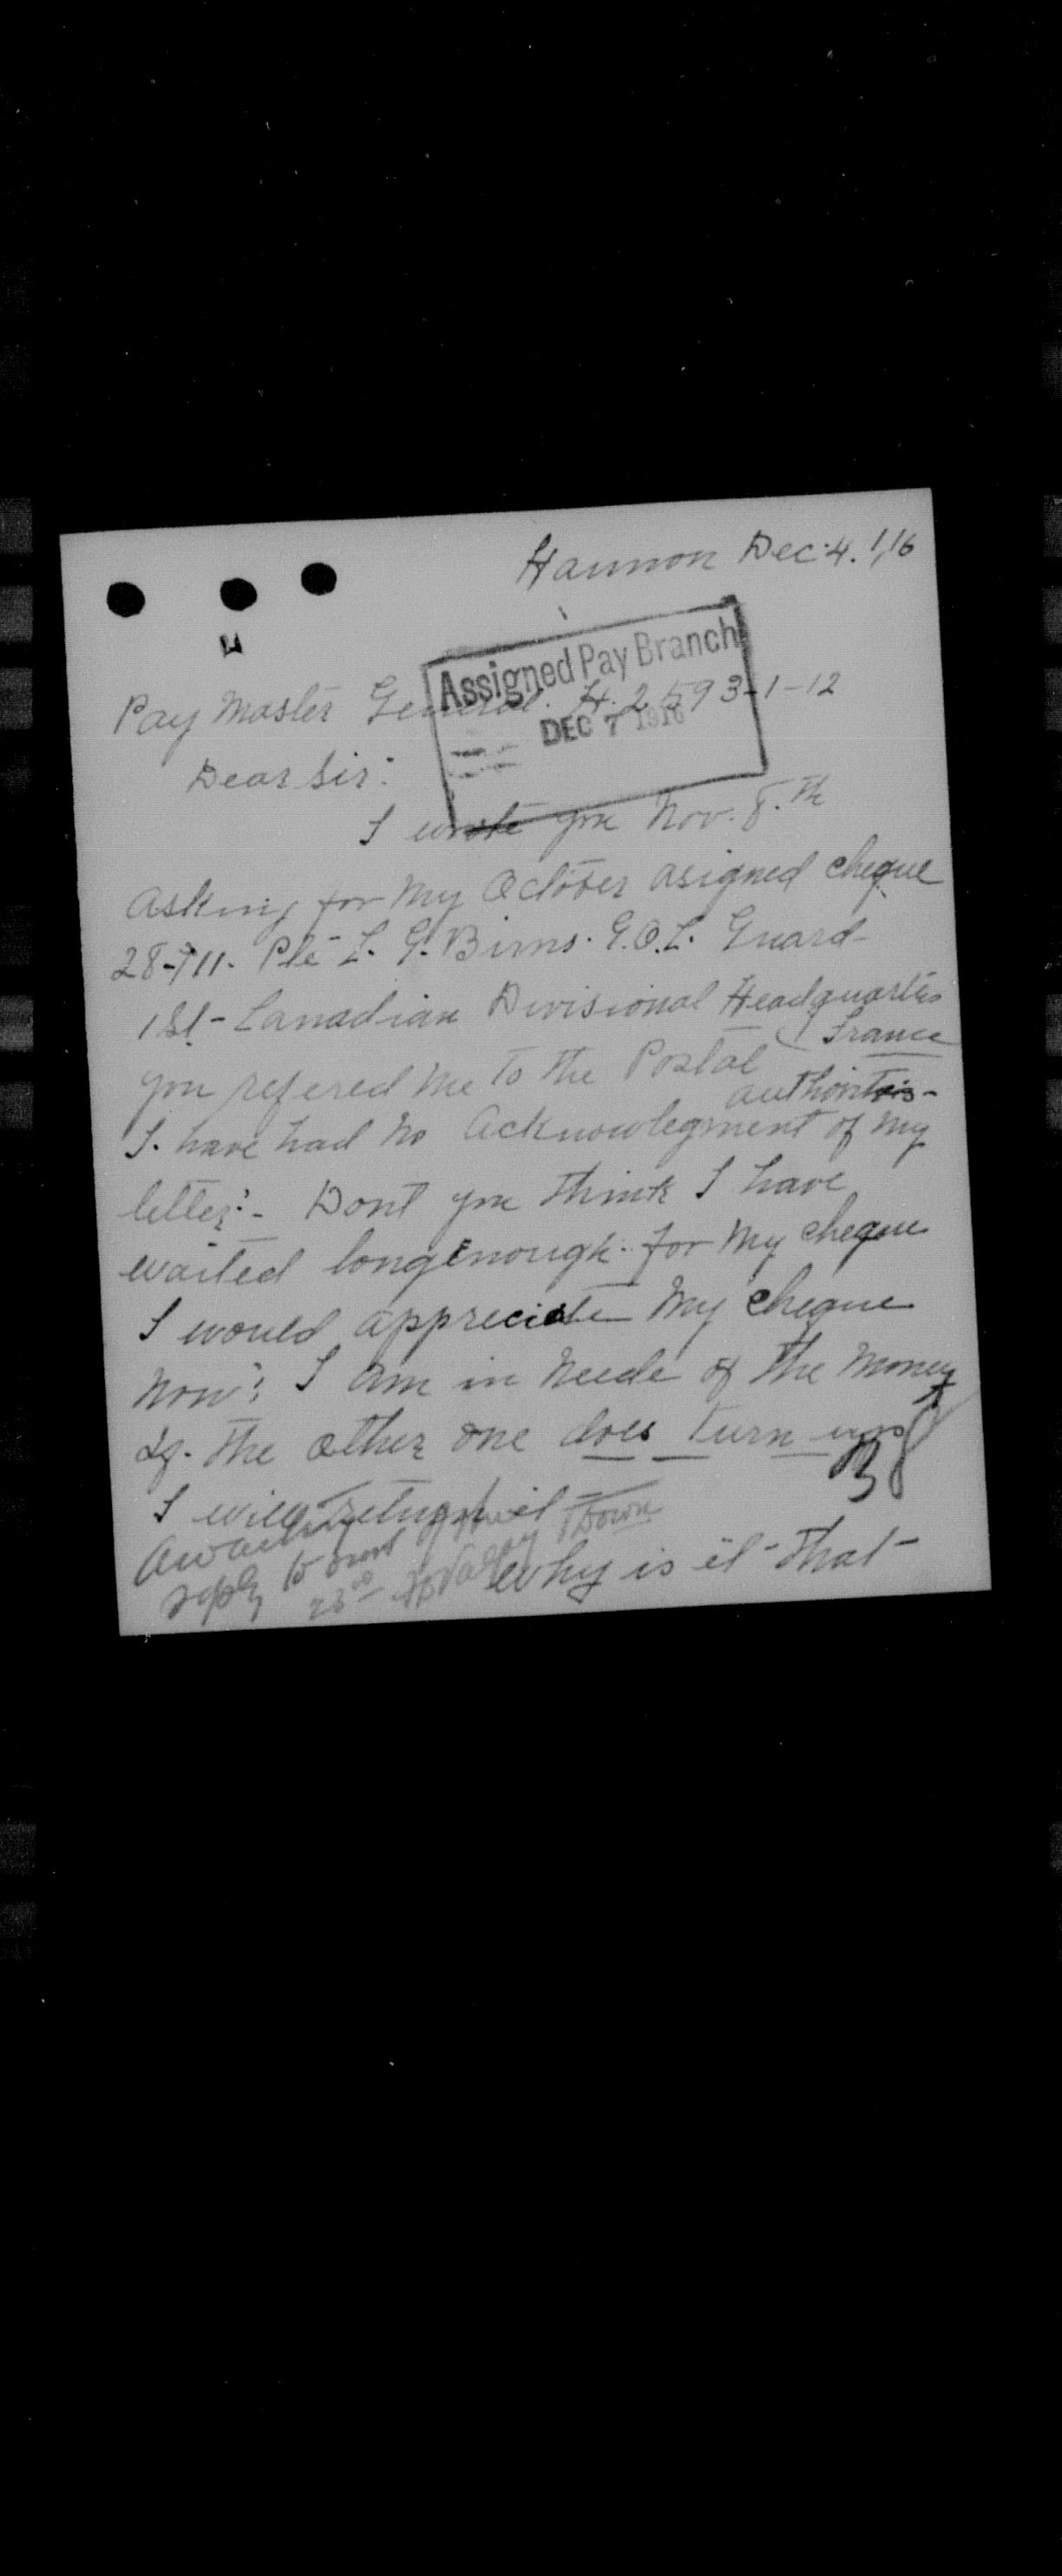 Hannon Dec. 4. 1,16
Assigned Pay Branch
DEC 7 1916
Pay Master General. H. 2593-1-12
Dear Sir:
I wrote you Nov. 8.th
Asking for My October asigned cheque
28-711. Pte L. G. Birns. G.O.C. Guard
1st - Canadian Divisional Headquarters
France
you refered me to the Postal
authorities-
I. have had no Acknowlegment of my
letter:- Dont you think I have
waited long Enough. for My cheque
I would appreciate My cheque
Now: I am in neede of the Money
If. the other one does turn up
I will return it
38
Awaiting
reply to
why is it - that -